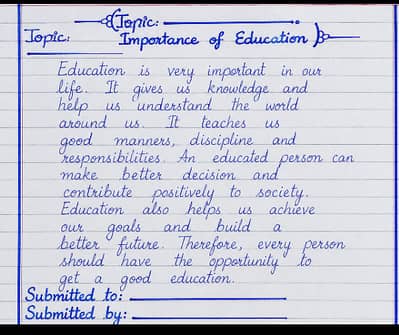 Topic:
Topic: Importance of Education
Education is very important in our
life. It gives us knowledge and
help us understand the world
around us. It teaches us
good manners, discipline and
responsibilities. An educated person can
make better decision and
contribute positively to society.
Education also helps us achieve
our goals and build a
better future. Therefore, every person
should have the opportunity to
get a good education.
Submitted to:
Submitted by: